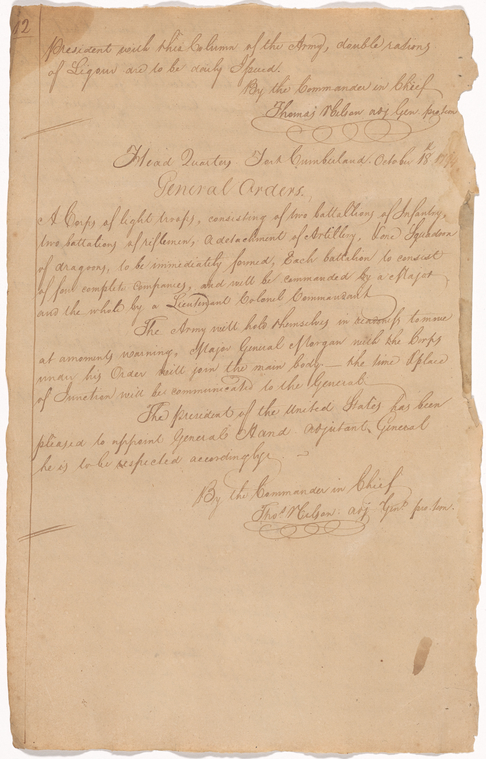 12
President with this Column of the Army, double rations
of Liquor are to be daily Issued.
By the Commander in Chief
Thomas Nelson adj Gen protem
Head Quarters Fort Cumberland. October 18th
General Orders.
A Corps of light troops, consisting of two battallions of Infantry,
two battalions of riflemen, a detachment of Artillery, & one Squadron
of dragoons, to be immediately formed, Each battalion to consist
of four complete Companies, and will be commanded by a Major
and the whole by a Lieutenant Colonel Commandant
The Army will hold themselves in readiness to move
at a moments warning, Major General Morgan with the Corps
under his Order will join the main body — the time & place
of Junction will be communicated to the General
The President of the United States has been
pleased to appoint General Hand adjutant General
he is to be respected accordingly
By the Commander in Chief
Thos. Nelson. adj. Genl. pro. tem.